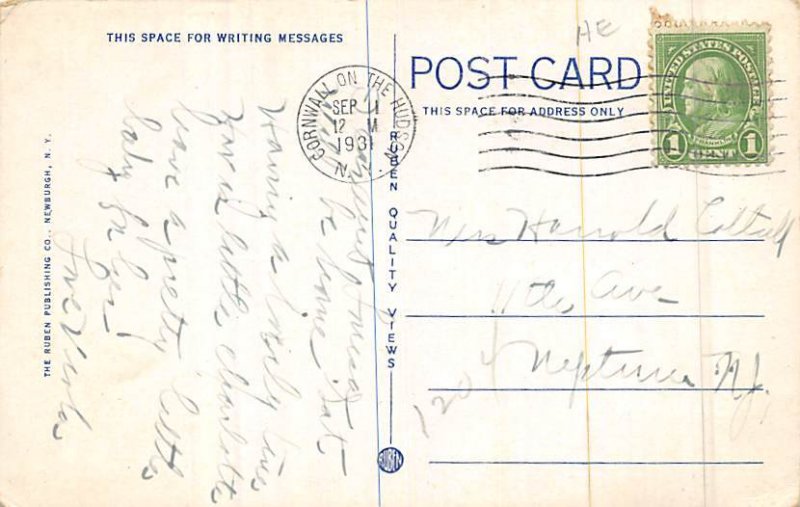 THIS SPACE FOR WRITING MESSAGES
POST CARD
THIS SPACE FOR ADDRESS ONLY
HE
UNITED STATES POSTAGE
FRANKLIN
1 1
CORNWALL ON THE HUDSON
SEP 1
12 M
1931
N.Y.
be home Sat
Having a lovely time
little charlotte
have a pretty little
baby
Love
Mrs Harold
11th Ave
1204
Neptune N.J.
RUBEN QUALITY VIEWS
RUBEN
THE RUBEN PUBLISHING CO., NEWBURGH, N. Y.